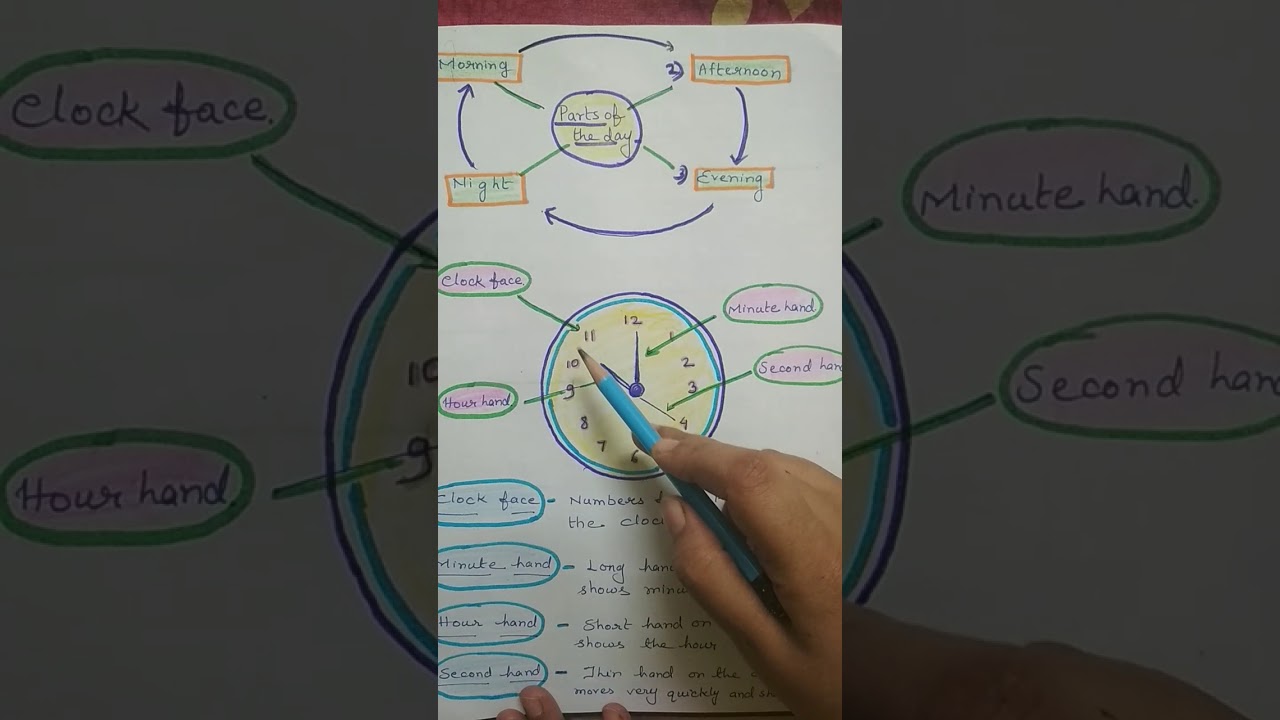 Morning
2) Afternoon
Parts of
the day
Night
3) Evening
Clock face
Minute hand
Second han
Hour hand
12
11
1
10
2
9
3
8
4
7
6
Clock face - Numbers
the cloc
Minute hand - Long han
shows minu
Hour hand - Short hand on
shows the hour
Second hand - Thin hand on the
moves very quickly and sh
Clock face.
Hour hand.
10
9
Minute hand.
Second han